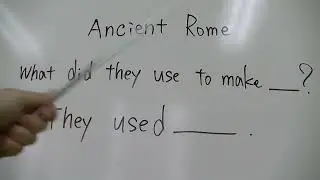 Ancient Rome
What did they use to make __?
They used ____.